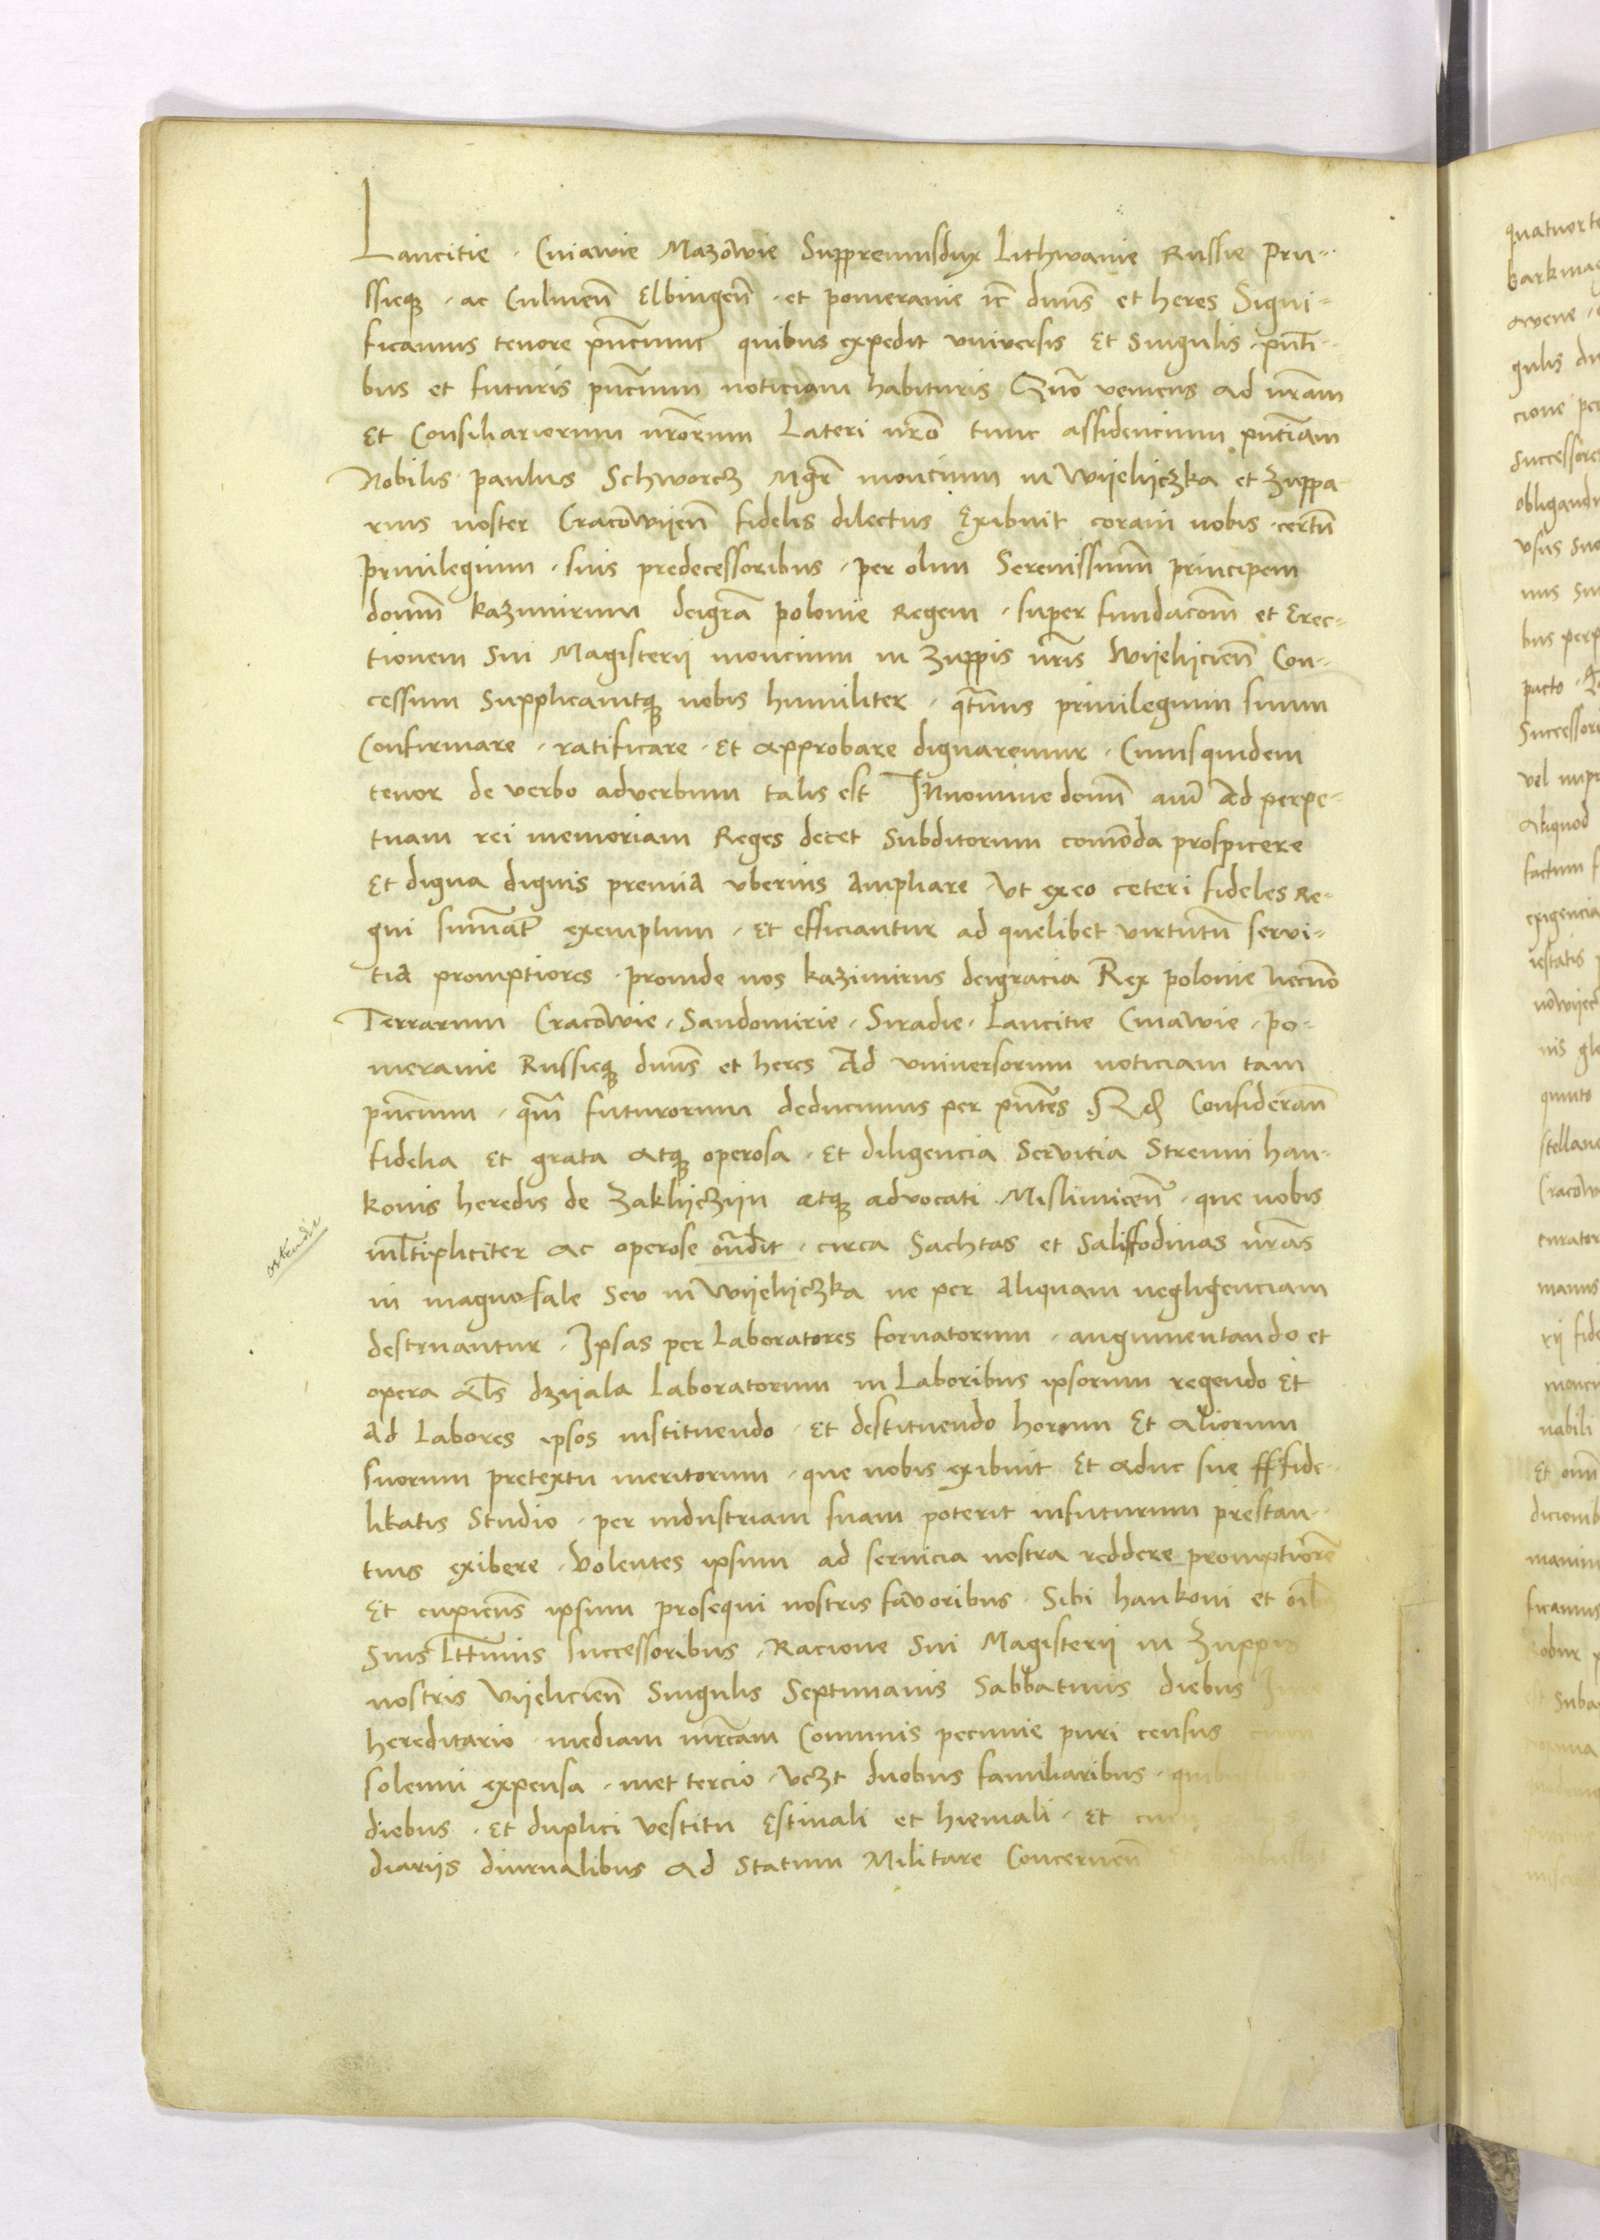 Lancitie . Cuiawie Mazowie Suppremusdux Lithwanie Russie Pru-
ssieq3 . ac Culmen̄ Elbingen̄ . et pomeranie ic̄ dnūs et heres Signi-
ficamus tenore pn̄cium quibus expedit vniversis Et Singulis . pn̄ti-
bus et futuris pn̄cium noticiam habituris Quō veniens ad nrām
Et Consiliariorum nrōrum Lateri nrō tunc assidencium pn̄ciam
Nobilis paulus Schworcz Mgr̄ moncium in Wijelijczka et Zuppa
rius noster Cracowijen̄ fidelis dilectus Exibuit coram nobis . certū
priuilegium . suis predecessoribus . per olim Serenissimū principem
domin̄ kazimirum deigrā polonie Regem . super fundacom̄ et Erec-
tionem Sui Magisterij moncium in Zuppis nrīs Wijelijcien̄ Con-
cessum Supplicauitq3 nobis humiliter . qt̄nus priuilegium suum
Confirmare . ratificare . Et approbare dignaremur . Cuiusquidem
tenor de verbo adverbum talis est Innomine domin̄ am̄ Ad perpe-
tuam rei memoriam Reges decet Subditorum com̄oda prospicere
Et digna dignis premia vberius Ampliare . Vt exeo ceteri fideles Re-
gni sum̄at̄ exemplum . Et efficiantur ad quelibet virtutū servi-
tia promptiores . proinde nos kazimirus deigracia Rex polonie Necnō
Terrarum Cracowie . Sandomirie . Siradie . Lancitie Cuiawie . po-
meranie Russieq3 dnūs et heres Ad vniversorum noticiam tam
pn̄cium . qm̄ futurorum deducimus per pn̄tes Consideran̄
fidelia Et grata atq3 operosa . Et diligencia Servitia Strenui han-
konis heredis de Zaklijczijn atq3 advocati Mislimicen̄ . que nobis
ostendit
ml̄tipliciter ac operose on̄dit . circa Sachtas et Saliffodinas nrās
in magno sale Seu in Wijelijczka ne per Aliquam negligenciam
destruantur . Ipsas per Laboratores fornatorum . augumentando et
opera als̄ dzijala Laboratorum in Laboribus ipsorum regendo Et
Ad Labores ipsos instituendo . Et destituendo horum Et aliorum
suorum pretextu meritorum . que nobis exibuit Et aduc sue fffide-
litatis Studio . per industriam suam poterit infuturum prestan-
tius exibere . Volentes ipsum ad seruicia nostra reddere promptiorē
Et cupiens̄ ipsum prosequi nostris favoribus . Sibi hankoni et oīb
Suis ltt̄imis successoribus . Racione Sui Magisterii in Zuppis
nostris Vijelicien̄ Singulis Septimanis Sabbatiuis diebus
hereditario . mediam mrcām Communis pecunie puri census cum
solenni expensa . met tercio . vczt duobus familiaribus .
diebus . Et duplici vestitu Estiuali et hiemali . Et
diariis diurnalibus Ad Statum Militare Concernen̄